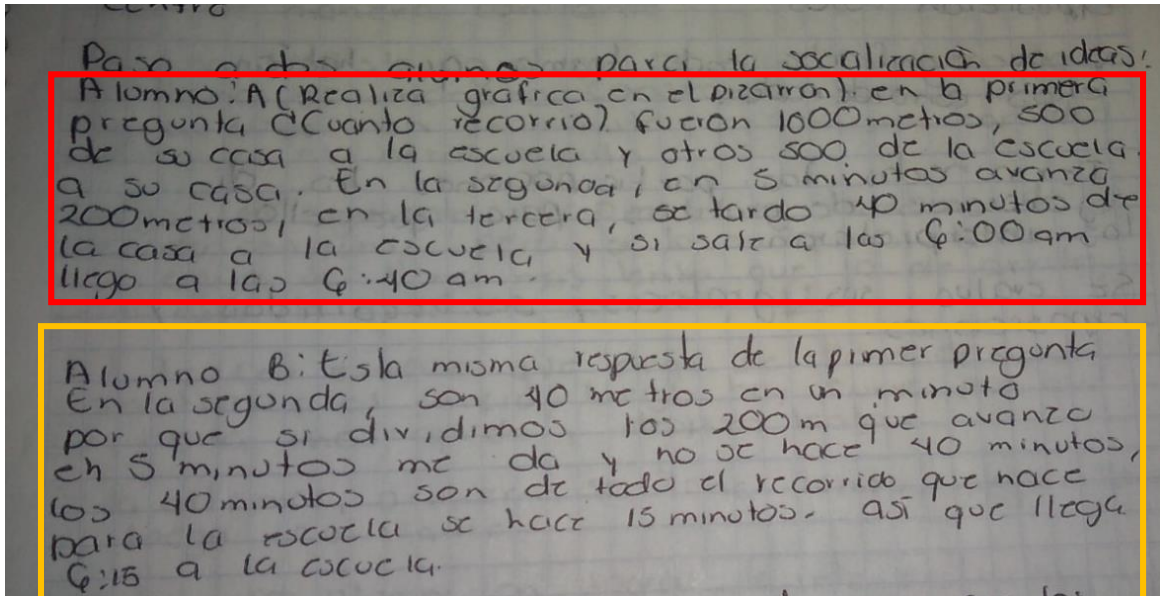 centro
Paso a dos alumnos para la socalización de ideas:
Alomno: A (Realiza gráfica en el pizarron) en la primera
pregunta (Cuanto recorrio) fueron 1000 metros, 500
de su casa a la escuela y otros 500 de la escuela
a su casa. En la segunda, en 5 minutos avanza
200 metros, en la tercera, se tardo 40 minutos de
la casa a la escuela y si sale a las 6:00 am
llego a las 6:40 am.
Alumno B: Es la misma respuesta de la primer pregunta
En la segunda, son 40 metros en un minuto
por que si dividimos los 200 m que avanzo
en 5 minutos me da y no se hace 40 minutos,
los 40 minutos son de todo el recorrido que hace
para la escuela se hace 15 minutos. así que llega
6:15 a la escuela.